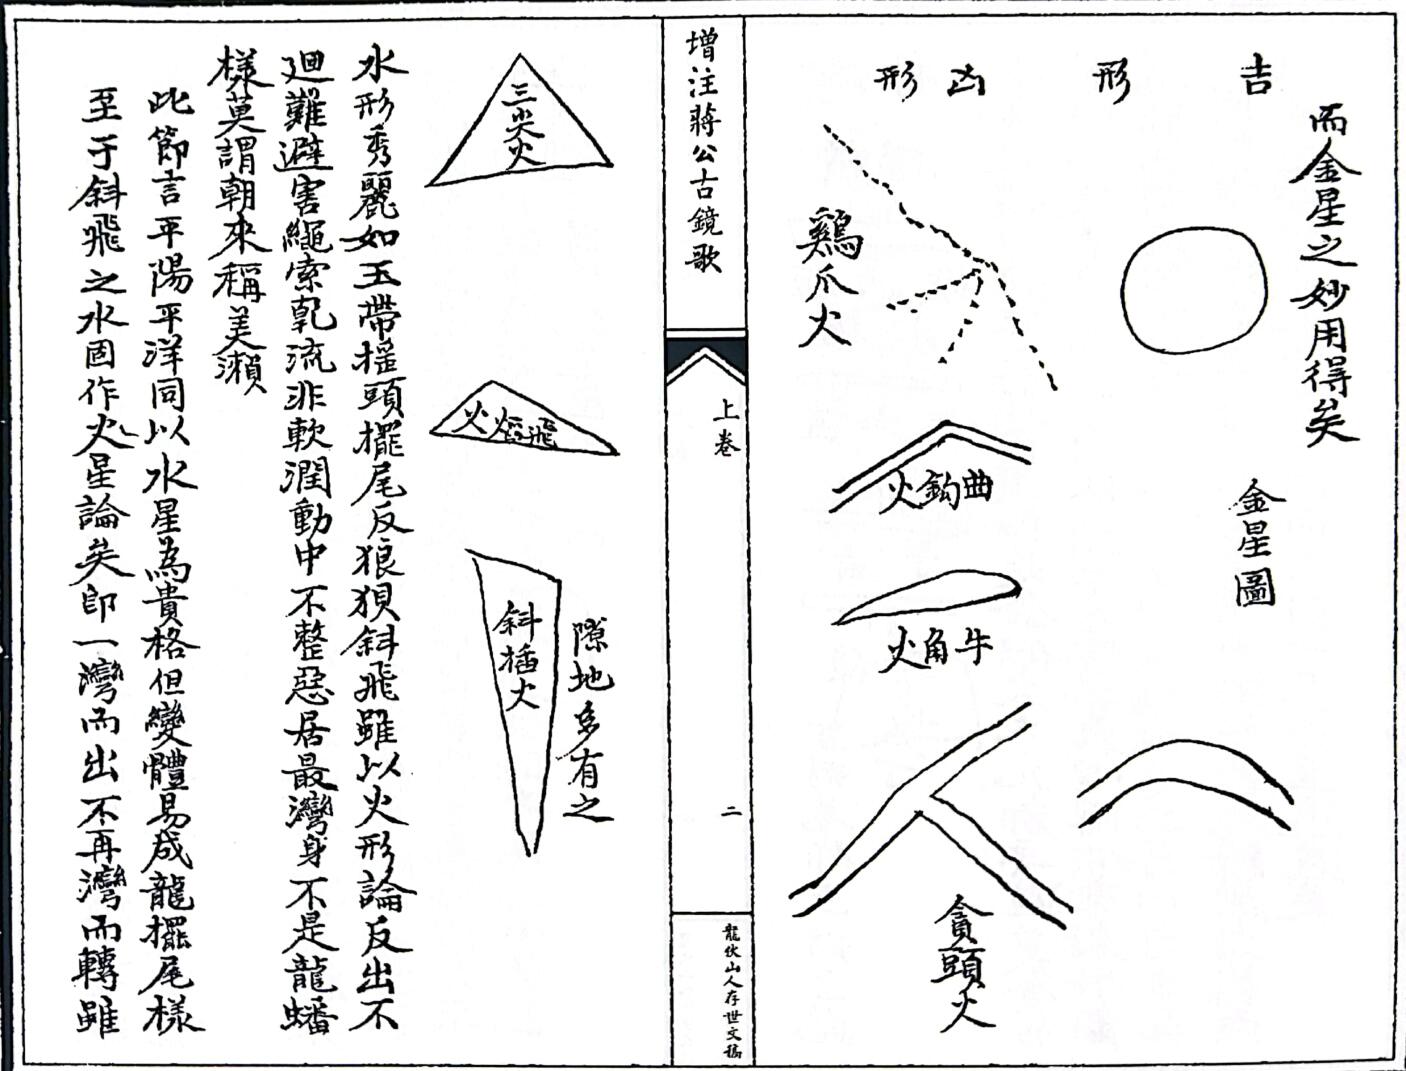 而金星之妙用得矣
吉
形
凶
形
金星圖
鷄爪火
曲鈎火
牛角火
貪頭火
增注蔣公古鏡歌
上卷
二
龍伏山人存世文稿
三尖火
飛熖火
斜插火
隙地多有之
水形秀麗如玉帶搖頭擺尾反狼狽斜飛雖以火形論反出不
廻難避害繩索乾流非軟潤動中不整惡居最灣身不是龍蟠
樣莫謂朝來稱美瀨
此節言平陽平洋同以水星為貴格但變體易成龍擺尾樣
至于斜飛之水固作火星論矣即一灣而出不再灣而轉雖